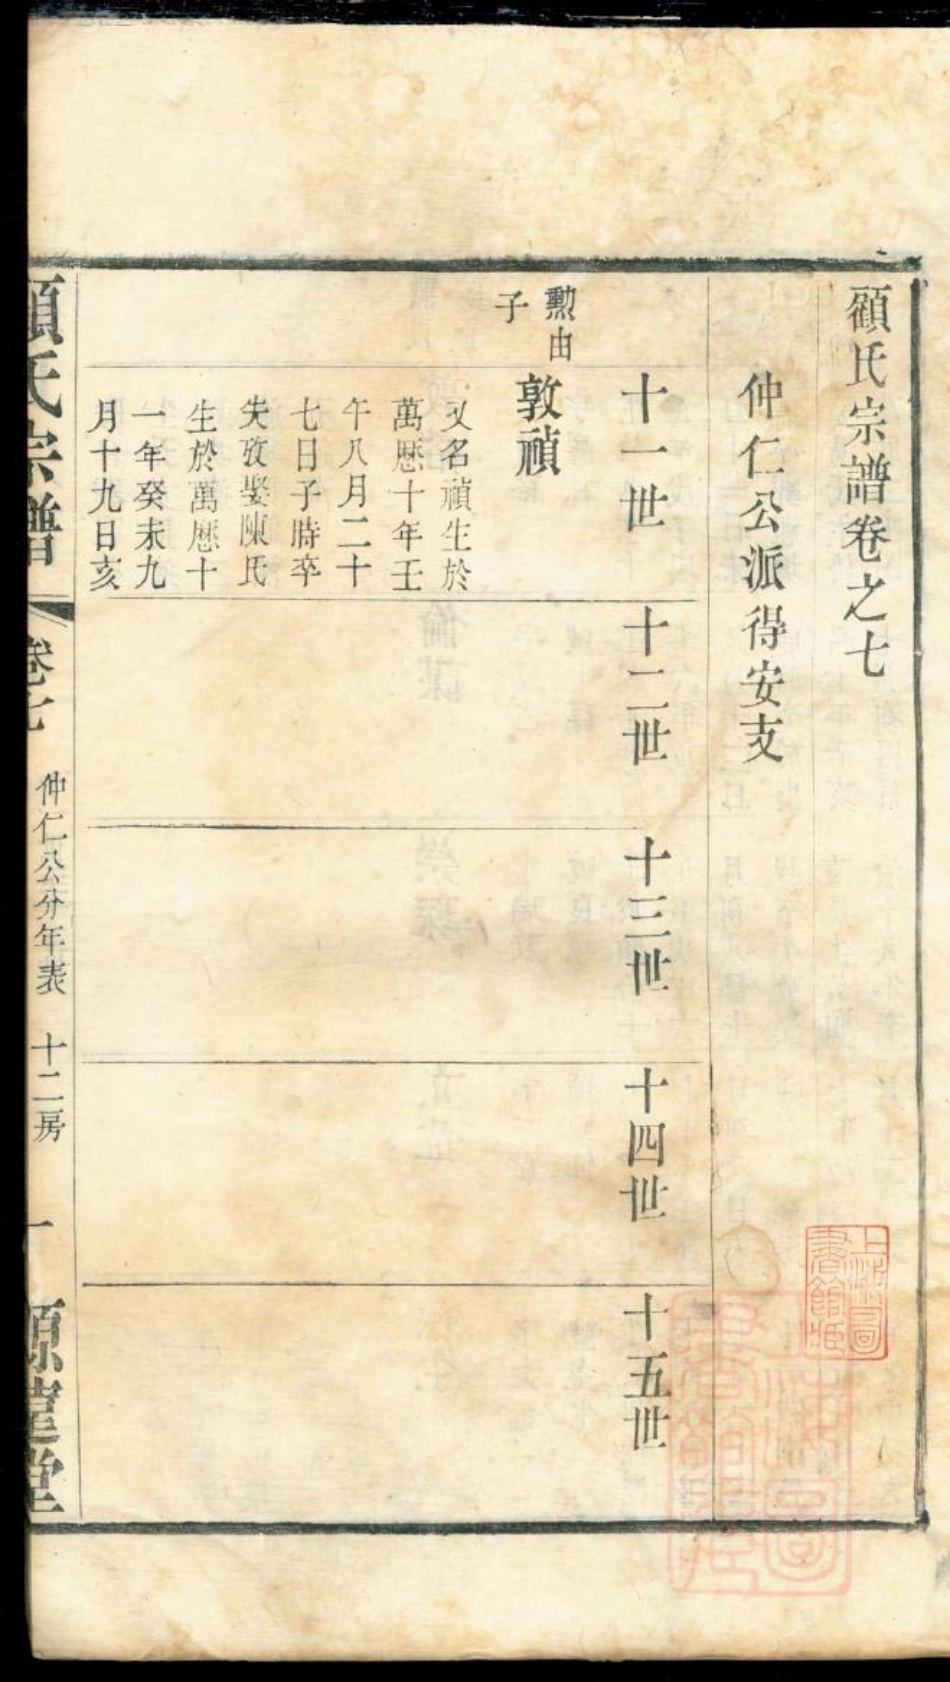 顧氏宗譜卷之七
仲仁公派得安支
十一世
十二世
十三世
十四世
十五世
勲由
子
敦禎
又名禎生於
萬厯十年壬
午八月二十
七日子時卒
失攷娶陳氏
生於萬厯十
一年癸未九
月十九日亥
顧氏宗譜
卷七
仲仁公分年表
十二房
一
上海圖
書館藏